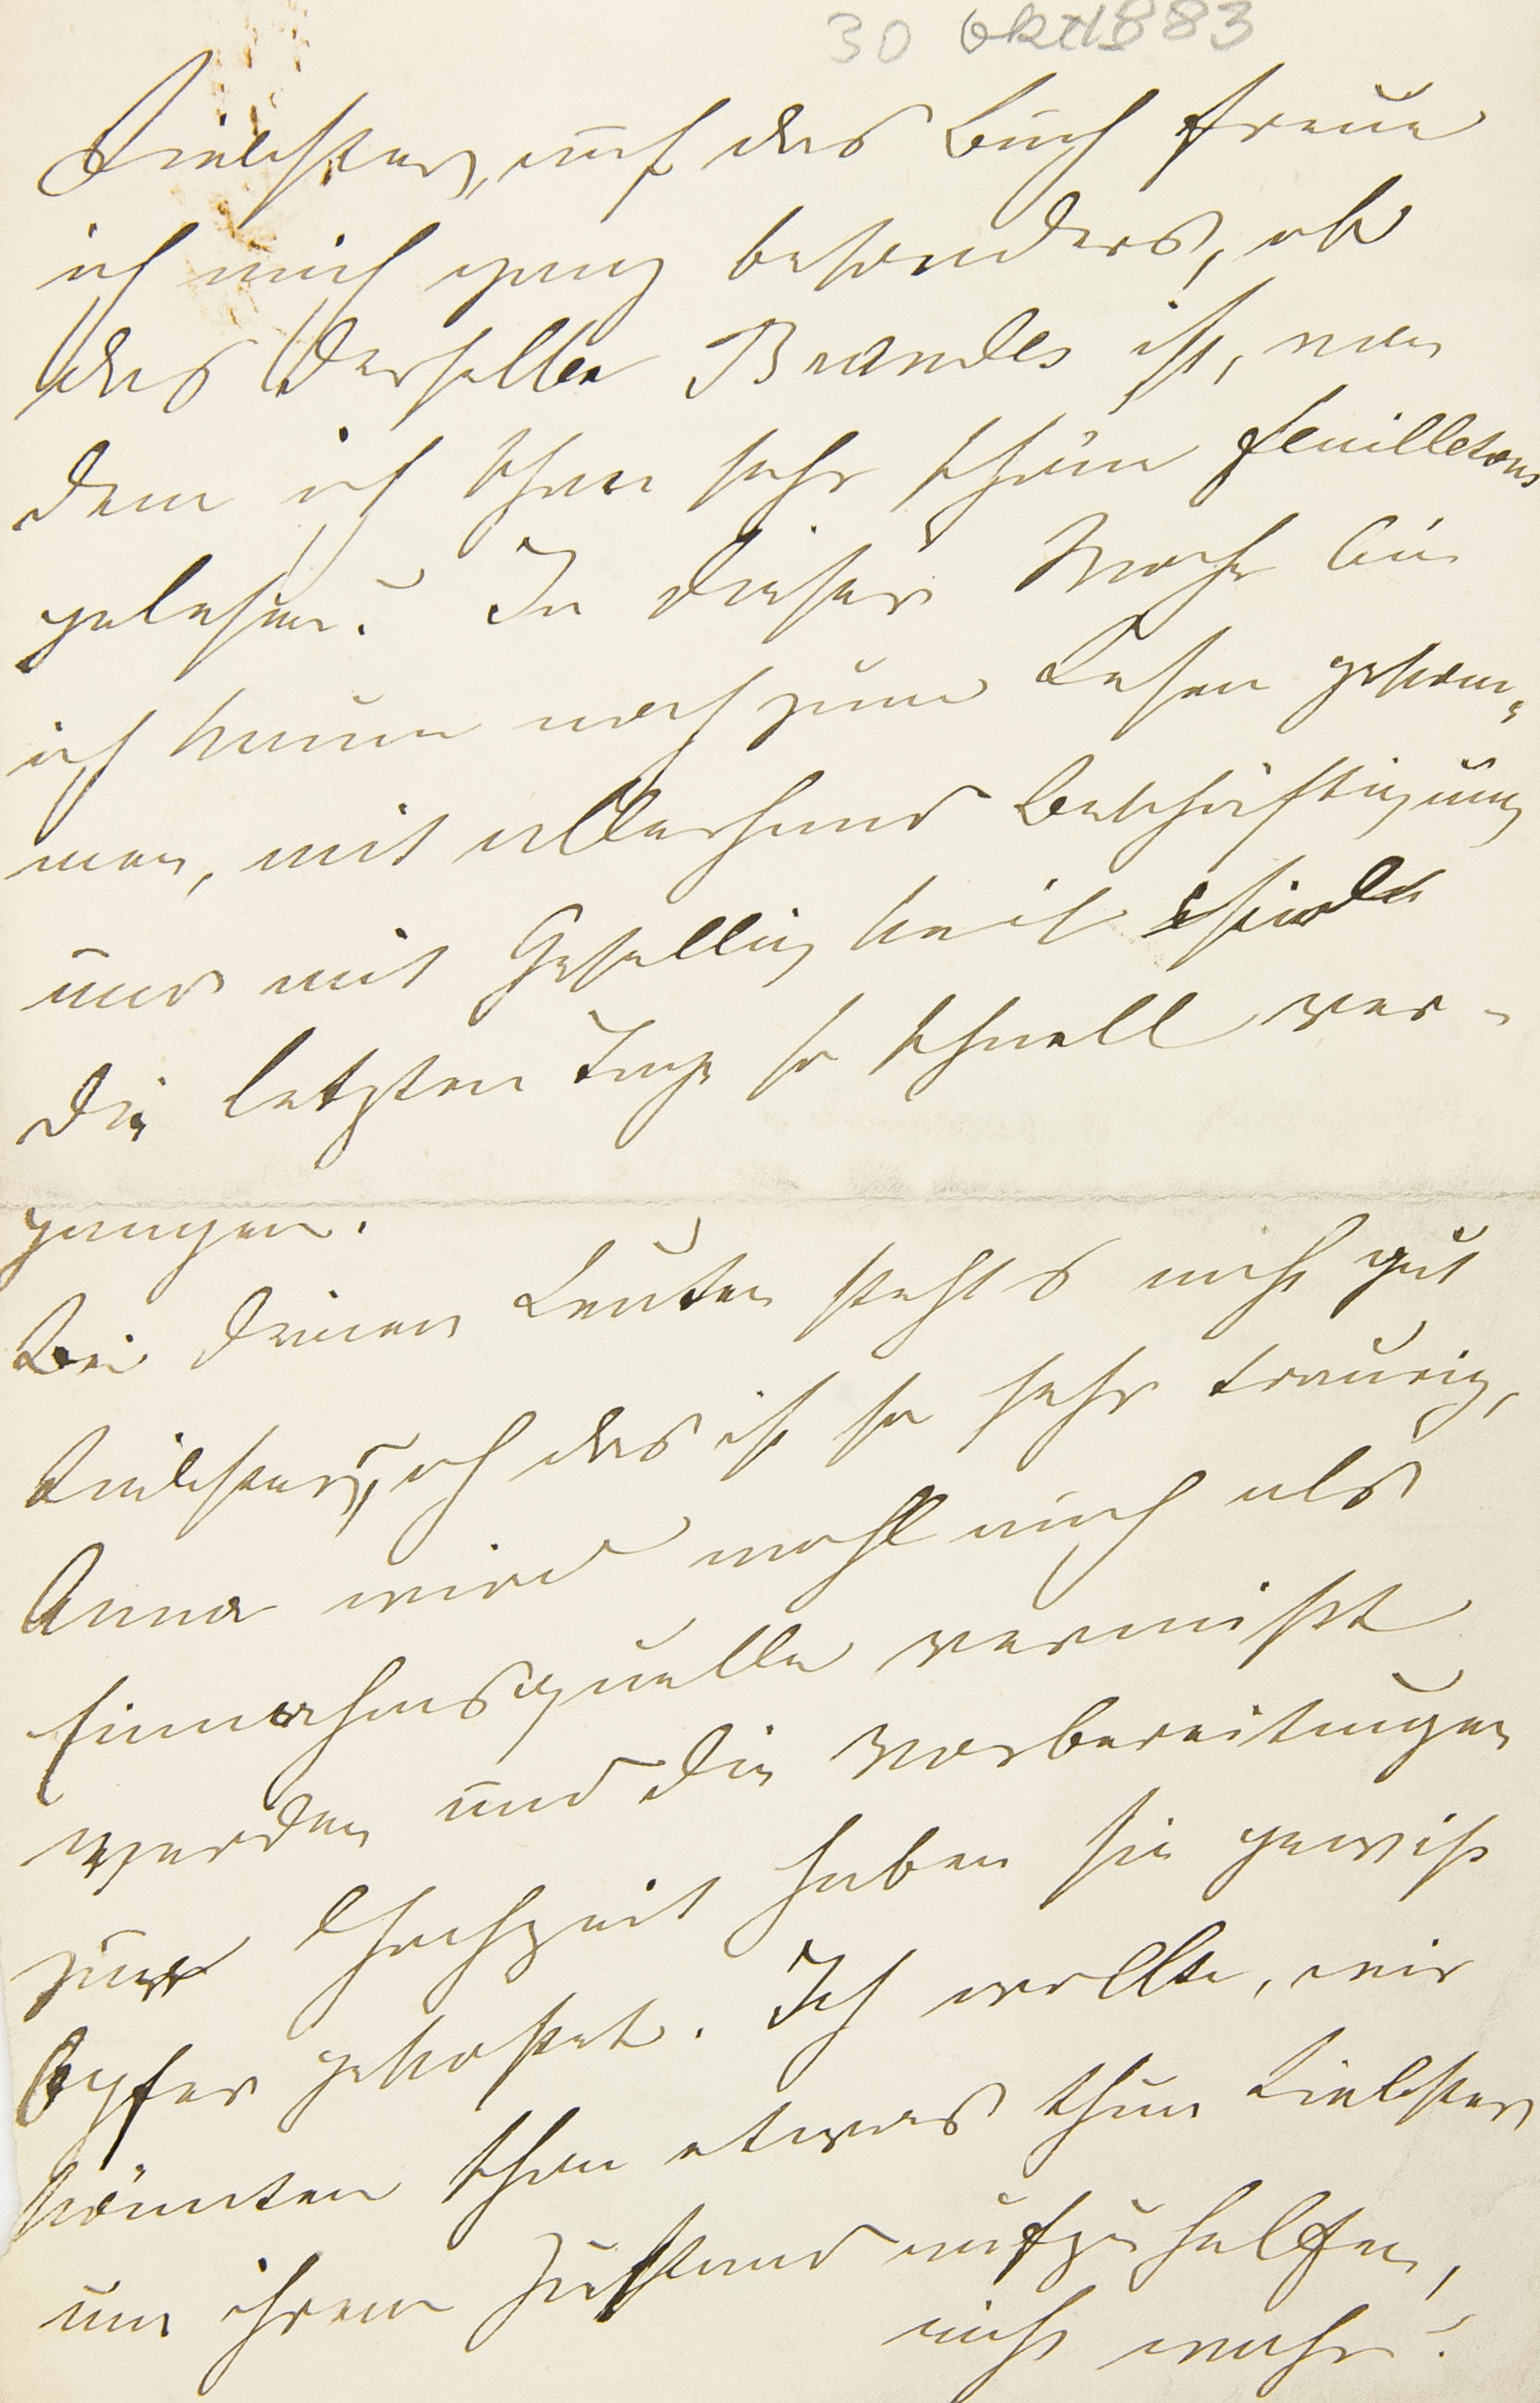 30 Okt 1883
Liebster, auf das Buch freue
ich mich ganz besonders, ob
das derselbe Brandes ist, von
dem ich schon sehr schöne feuilletons
gelesen? In dieser Woche bin
ich kaum noch zum Lesen gekom-
men, mit allerhand Beschäftigung
und mit Geselligkeit sind
die letzten Tage so schnell ver-
gangen.
Bei Deinen Leuten steht's nicht gut
Liebster, ach das ist so sehr traurig,
Anna wird wohl auch als
Einnahmsquelle vermißt
werden und die Vorbereitungen
zur Hochzeit haben sie gewiß
Opfer gekostet. Ich wollte, wir
könnten schon etwas thun Liebster
um ihrem Zustand aufzuhelfen,
nicht wahr?